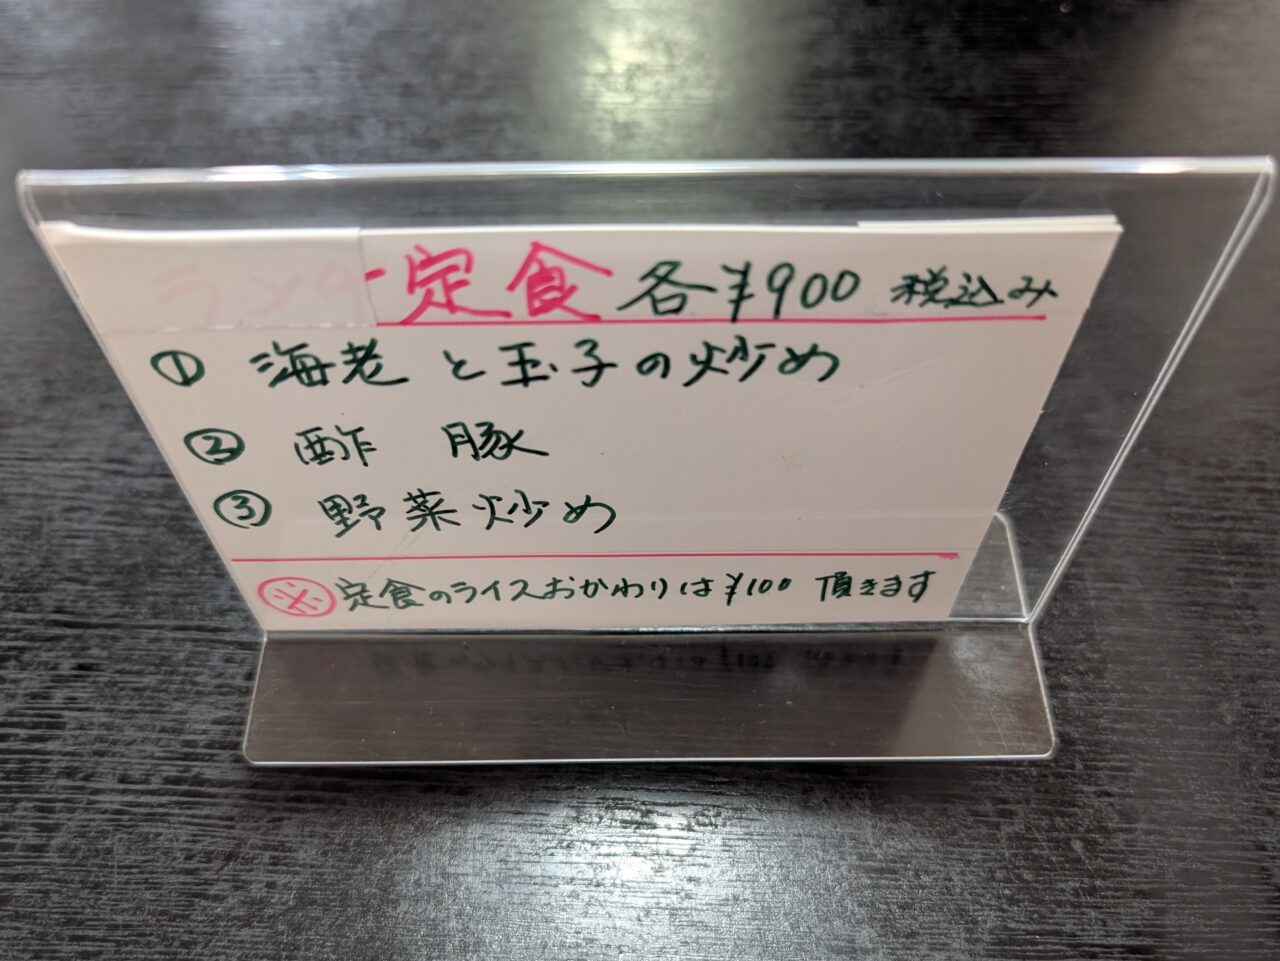 ランチ定食 各¥900 税込み
① 海老と玉子の炒め
② 酢 豚
③ 野菜炒め
※ 定食のライスおかわりは¥100 頂きます